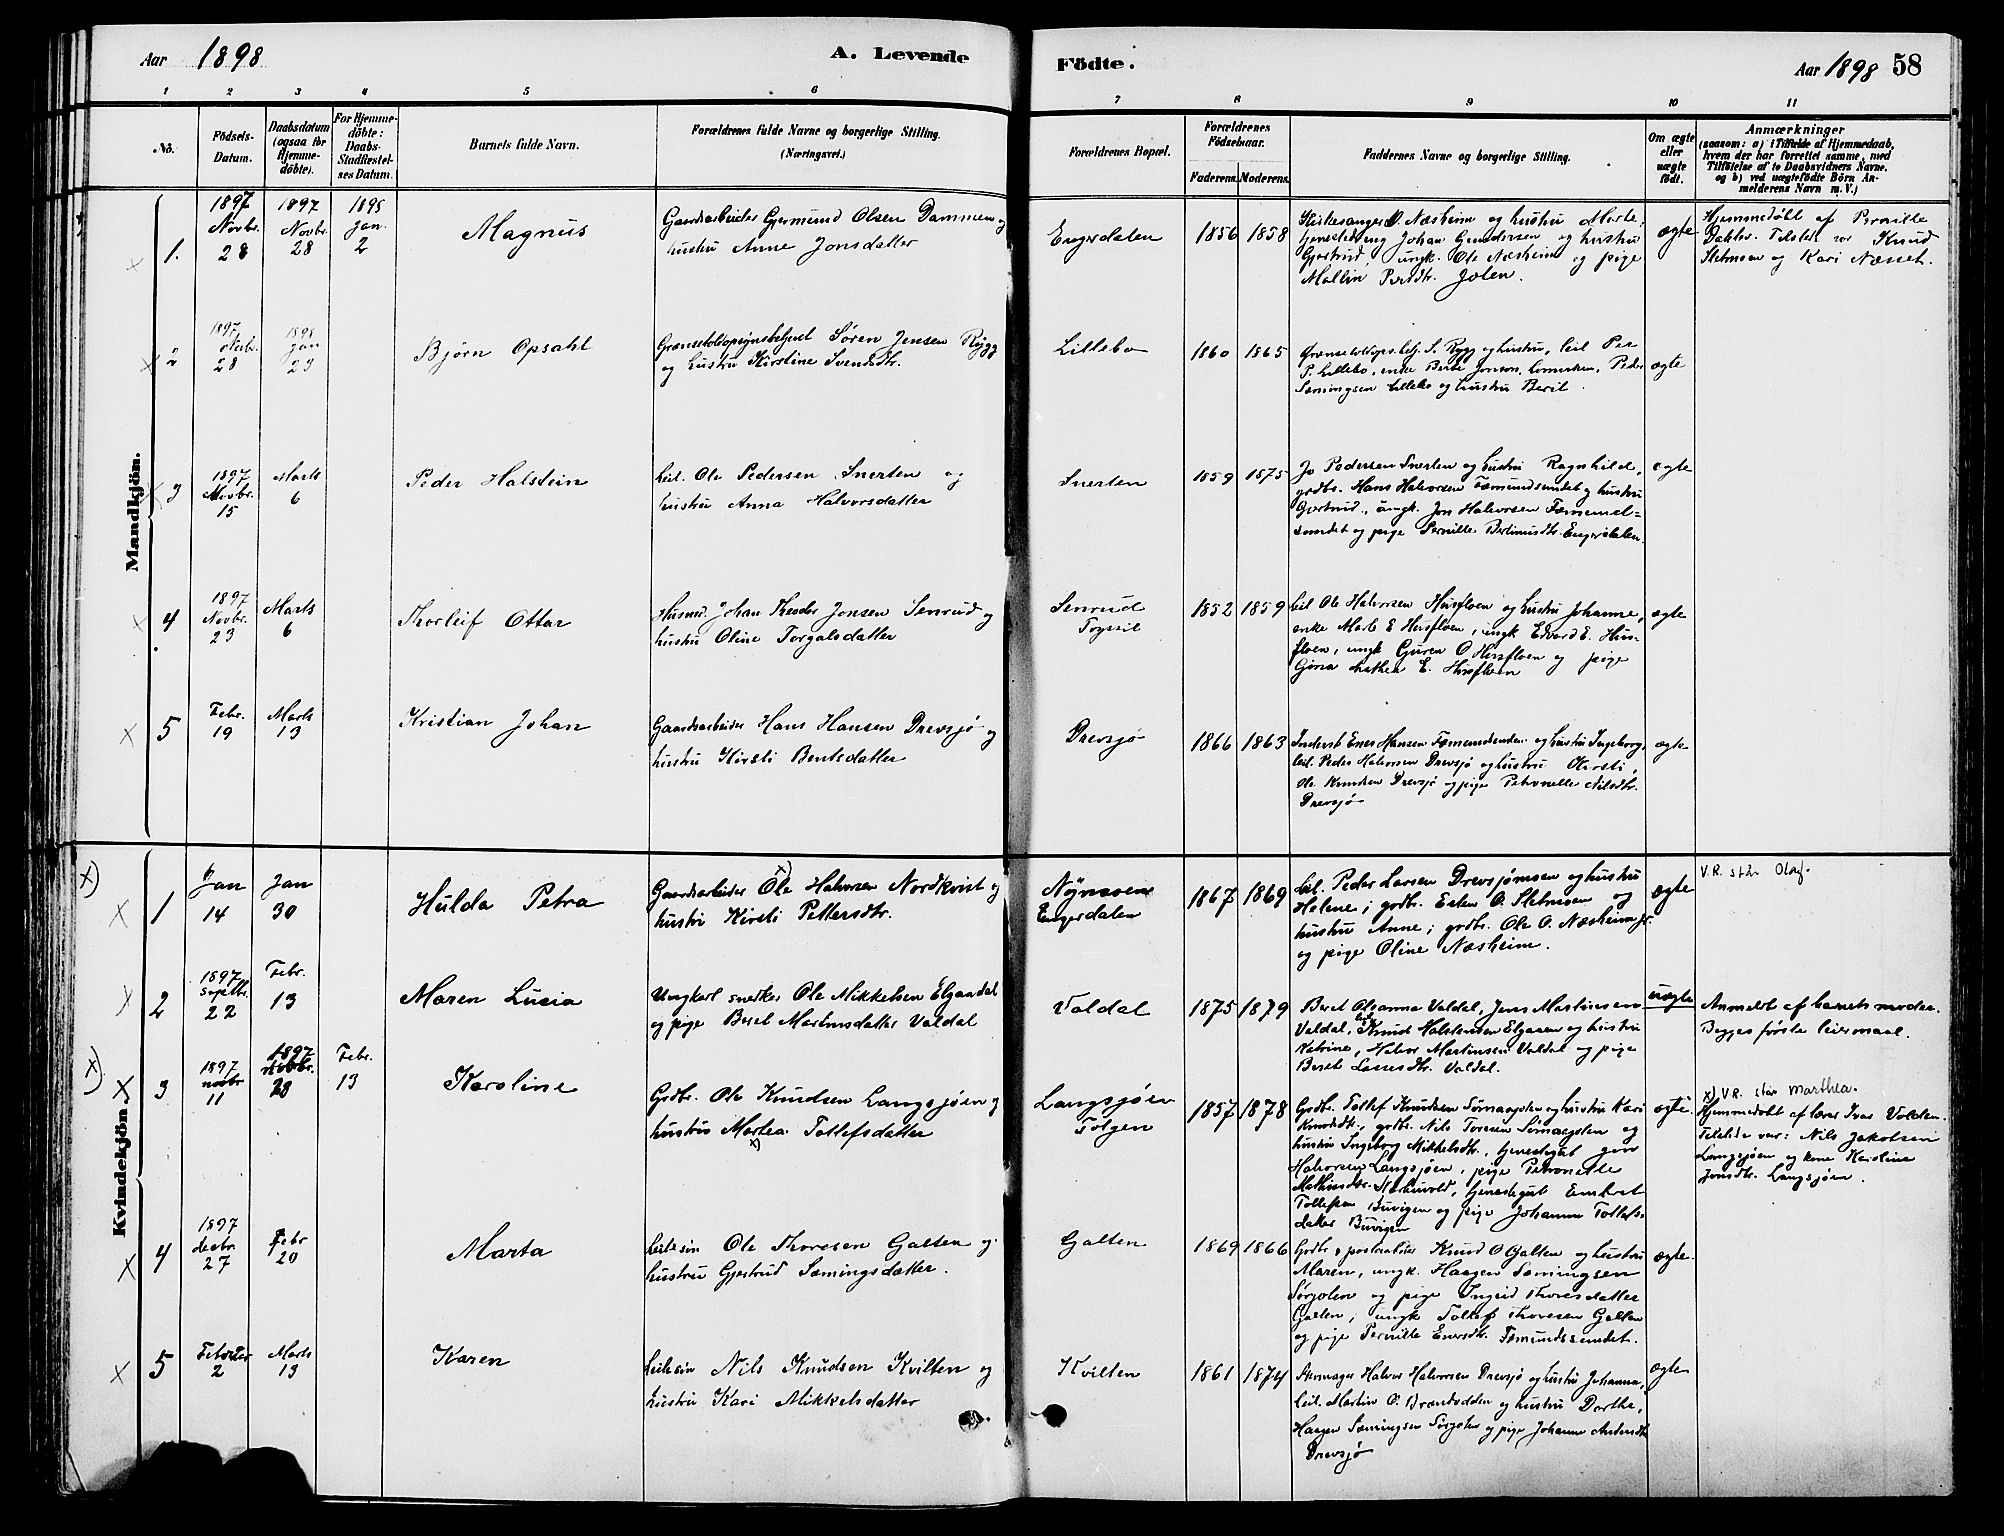 Aar 1898
A. Levende
Födte.
Aar 1898 58
1 2 3 4 5 6 7 8 9 10 11
No.
Födsels-
Datum.
Daabsdatum
(ogsaa for
Hjemme-
döbte).
For Hjemme-
döbte:
Daabs-
Stadfæstel-
ses Datum.
Barnets fulde Navn.
Forældrenes fulde Navne og borgerlige Stilling.
(Næringsvei.)
Forældrenes Bopæl.
Forældrenes
Födselsaar.
Faderens. Moderens.
Faddernes Navne og borgerlige Stilling.
Om ægte
eller
uægte
födt.
Anmærkninger
(saasom: a) i Tilfælde af Hjemmedaab,
hvem der har forrettet samme, med
Tilföielse af to Daabsvidners Navne,
og b) ved uægtefödte Börn An-
melderens Navn m. V.)
Mandkjön.
1.
1897
Novbr.
28
1897
Novbr.
28
1898
Jan.
2
Magnus
Gaardsarbeider Gjermund Olsen Dammen og
hustru Anne Jonsdatter
Engerdalen
1856 1858
Kirkesanger O Næsheim og hustru Marte,
Johan Gundersen og hustru
Gjertrud, ungk. Ole Næsheim og pige
Mallin Persdtr. Jolen.
ægte
Hjemmedøbt af Pernille
Tilstede var Knud
Sletmoen og Kari Næsset.
2
1897
Novbr.
28
1898
Jan
23
Bjørn Opsahl
Grænseopsynsbetjent Søren Jensen Rygg
og hustru Kirstine Svendsdtr.
Lillebo
1860 1865
S. Rygg og hustru, leil Per
P. Lillebo, enke Berte Jonson, Peder
Sæmingsen Lillebo og hustru Beril.
ægte
3
1897
Novbr.
15
Marts
6
Peder Halstein
Leil. Ole Pedersen Snerten og
hustru Anna Halvorsdatter
Snerten
1859 1875
Jo Pedersen Snerten og hustru Ragnhilde,
grdbr. Hans Halvorsen Fæmundsundet og hustru
Gjertrud, ungk. Jon Halvorsen Fæmund-
sundet og pige Pernille Bertinusdtr. Engerdalen.
ægte
4
1897
Novbr.
23
Marts
6
Thorleif Ottar
Husmd. Johan Theodor Jonsen Senrud og
hustru Oline Torgalsdatter
Senrud
Trysil
1852 1859
Leil Ole Halvorsen Husfloen og hustru Johanne,
enke Marte E Husfloen, ungk Edvard E. Hus-
floen, ungk Guren O Husfloen og pige
E. Husfloen
ægte
5
Febr.
19
Marts
13
Kristian Johan
Gaardsarbeider Hans Hansen Drevsjø og
hustru Kirsti Berntsdatter
Drevsjø
1866 1863
Inderst Ener Hansen Fæmundsenden og hustru Ingeborg,
leil. Peder Halvorsen Drevsjø og hustru Kirsti,
Ole Knudsen Drevsjø og pige Petronelle Nilsdtr.
Drevsjø
ægte
Kvindekjön.
x)
1
Jan
14
Jan
30
Hulda Petra
x)
Gaardsarbeider Ole Halvorsen Nordkvist og
hustru Kirsti Pettersdtr.
Nymoen
Engerdalen
1867 1869
Leil. Peder Larsen Drevsjømoen og hustru
Helene; grdbr. Esten O. Sletmoen og
hustru Anne; grdbr. Ole O. Næsheim jr.
og pige Oline Næsheim.
ægte
V.R. står Olaf.
2
1897
septbr.
22
Febr.
13
Maren Lucia
Ungkarl snedker Ole Mikkelsen Elgaadal
og pige Beret Martinusdatter Valdal
Valdal
1875 1879
Beret Oleanna Valdal, Jens Martinsen
Valdal, Knud Halstensen Elgaaen og hustru
Katrine, Halvor Martinsen Valdal og pige
Beret Lassesdtr. Valdal.
uægte
Anmeldt af barnets moder.
Begges første leiermaal.
x)
3
1897
novbr
11
1897
Novbr.
28
Febr.
13
Karoline
Grdbr. Ole Knudsen Langsjøen og
hustru Martea Tollefsdatter
x)
Langsjøen
Tolgen
1857 1878
Grdbr. Tollef Knudsen Sømaagsten og hustru Kari
Knudsdtr., grdbr. Nils Toresen Sømaagsten og
hustru Ingeborg Mikkelsdtr., tjenestegut
Halvorsen Langsjøen, pige Petronelle
tjenestegut Embret
Tollefsen Buvigen og pige Johanne Tollefs-
datter Buvigen
ægte
x) V.R. står Marthea.
Hjemmedøbt af lærer Ivar Volden.
Tilstede var: Nils Jakobsen
Langsjøen og kone Karoline
Jonsdtr. Langsjøen.
4
1897
decbr
27
Febr
20
Marta
Leilesin Ole Thoresen Galten og
hustru Gjertrud Sæmingsdatter.
Galten
1869 1866
Grdbr & postaabner Knud O Galten og hustru
Maren, ungk. Haagen Sæmingsen
Sørjolen og pige Ingrid Thoresdatter
Galten; ungk Tollef Thoresen Galten
og pige Pernille Enersdtr. Fæmundssundet.
ægte
5
Februar
2
Marts
13
Karen
Leilesin Nils Knudsen Kvilten og
hustru Kari Mikkelsdatter
Kvilten
1861 1874
Halvor Halvorsen Drevsjø og hustru Johanna,
leil. Martin O. Brændvolden og hustru Dorthe,
Haagen Sæmingsen Sørjolen og pige Johanne Andersdtr
Drevsjø
ægte